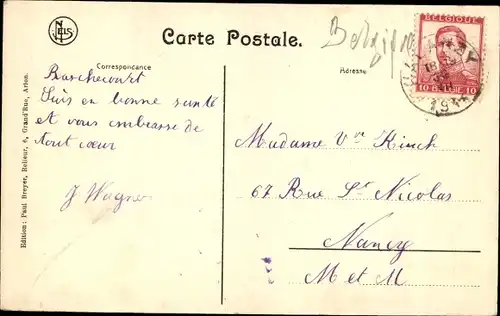 NELS
Carte Postale.
Belgique
BELGIQUE
10 BELGIE 10
1914
Correspondance
Adresse
Suis en bonne santé
et vous embrasse de
tout cœur
J Wagner
Madame Vve Kinch
67 Rue St Nicolas
Nancy
M et M
Edition: Paul Breyer, Relieur, 6, Grand'Rue, Arlon.